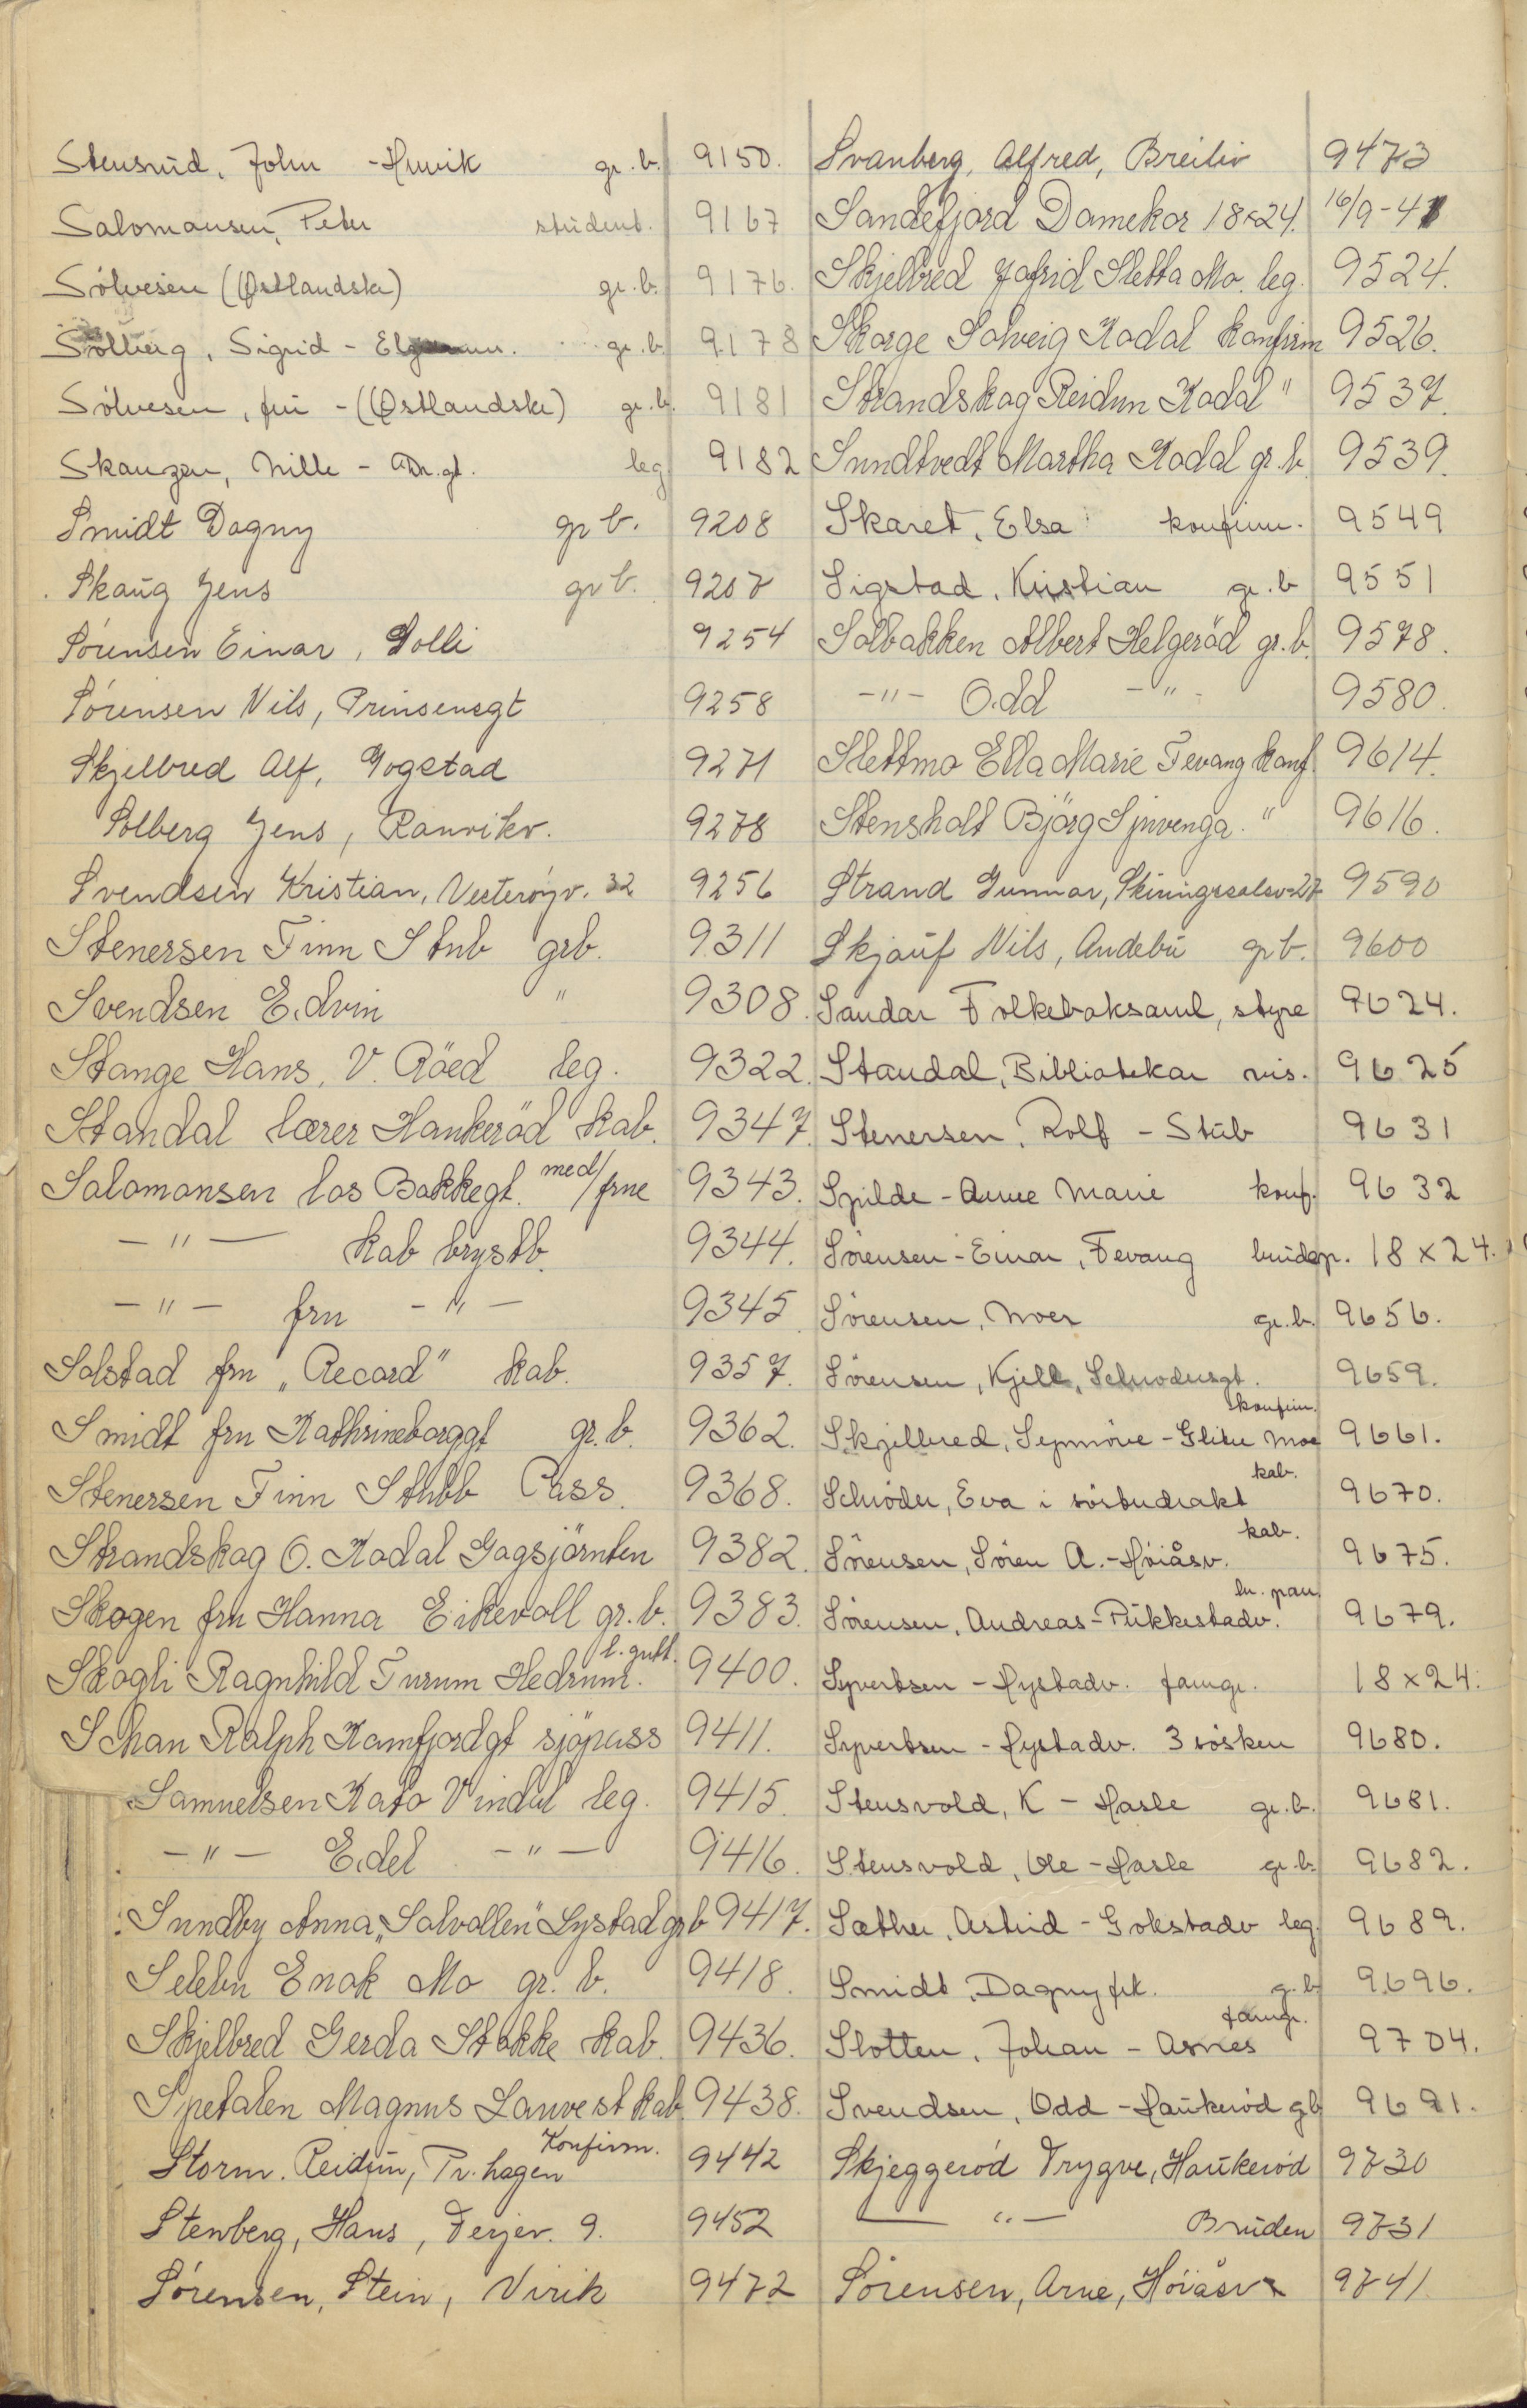 Stensrud, John - Hunvik gr.b. 9150.
Salomansen, Peter student. 9167
Sölvesen (Østlandske) gr.b. 9176.
Solberg, Sigrid - gr.b. 9178
Sölvesen, fru - (Østlandske) gr.b. 9181
Skauzen, Nille - Dr.gt. leg 9182
Smidt Dagny gr b. 9208
Skaug Jens gr b. 9207
Sörensen Einar, Solli 9254
Sörensen Nils, Prinsensgt 9258
Skjelbred Alf, Gogstad 9271
Solberg Jens, Ranvikv. 9278
Svendsen Kristian, Vesteröyv. 32 9256
Stenersen Finn Stub grb. 9311
Svendsen Edvin " 9308.
Stange Hans, V. Röed leg. 9322.
Standal lærer Haukeröd kab. 9347.
Salomonsen los Bakkegt. med/frue 9343.
-"- kab brystb. 9344.
-"- fru -"- 9345
Solstad fru "Record" kab. 9357.
Smidt fru Kathrineborggt gr.b. 9362.
Stenersen Finn Stubb Pass. 9368.
Strandskog O. Kodal Gogsjörnten 9382.
Skogen fru Hanna Eikevoll gr.b. 9383.
Skogli Ragnhild Furum Hedrum. 9400.
Schan Ralph Kamfjordgt sjöpass 9411.
Samuelsen Kato Vindal leg. 9415.
-"- Edel -"- 9416.
Sundby Anna, "Solvollen" Lystad grb 9417.
Selebn Enok Mo gr.b. 9418.
Skjelbred Gerda Stokke kab. 9436.
Spetalen Magnus Lauvest kab. 9438.
Storm. Reidun, Pr. hagen Konfirm. 9442
Stenberg, Hans, Ferjev. 9. 9452
Sörensen, Stein, Virik 9472
Svanberg, Alfred, Breiliv 9473
Sandefjord Damekor 18x24. 16/9-41
Skjelbred Jofrid Sletta Mo. leg. 9524.
Skorge Solveig Kodal konfirm 9526.
Strandskog Reidun Kodal " 9537.
Sundtvedt Martha Kodal gr.b. 9539.
Skaret, Elsa konfirm. 9549
Sigstad, Kristian gr.b 9551
Solbakken Albert Helgeröd gr.b. 9578.
-"- Odd -"- 9580.
Slettmo Ella Marie Fevang konf. 9614.
Stensholt Björg Sjuvenga. " 9616.
Strand Gunnar, Skiringssalsv-27 9590
Skjauf Nils, Andebu gr b. 9600
Sandar Folkeboksaml, styre 9624.
Standal, Bibliotekar vis. 9625
Stenersen, Rolf - Stub 9631
Spilde - Anne Marie konf. 9632
Sörensen - Einar, Fevang brudep. 18x24.
Sörensen, Moer gr.b. 9656.
Sörensen, Kjell, Schrödersgt. 9659.
Skjelbred, Synnöve - Moe konfirm. 9661.
Schröder, Eva i kab. 9670.
Sörensen, Sören A. - Höiåsv. kab. 9675.
Sörensen, Andreas - Pukkestadv. 9679.
Syvertsen - Nystadv. famgr. 18x24.
Syvertsen - Nystadv. 3 sösken 9680.
Stensvold, K - Hasle gr.b. 9681.
Stensvold, Ole - Hasle gr.b. 9682.
Sæther, Astrid - Gokstadv leg. 9689.
Smidt, Dagny frk. g.b 9696.
Slotten, Johan - Asnes famgr. 9704.
Svendsen, Odd - Haukeröd gb 9691.
Skjeggeröd Trygve, Haukeröd 9730
-"- Bruden 9731
Sörensen, Arne, Höiåsv 9741